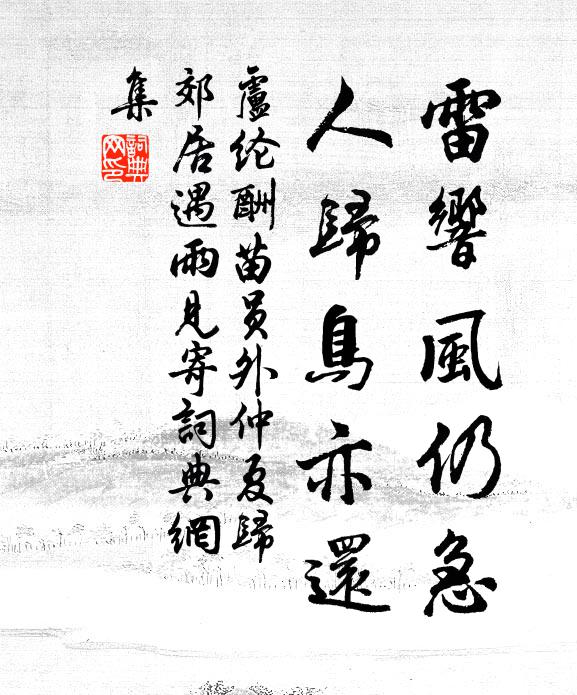 雷響風仍急
人歸鳥亦還
盧纶酬苗员外仲夏歸
郊居遇雨見寄詞典網
集
詞典网印